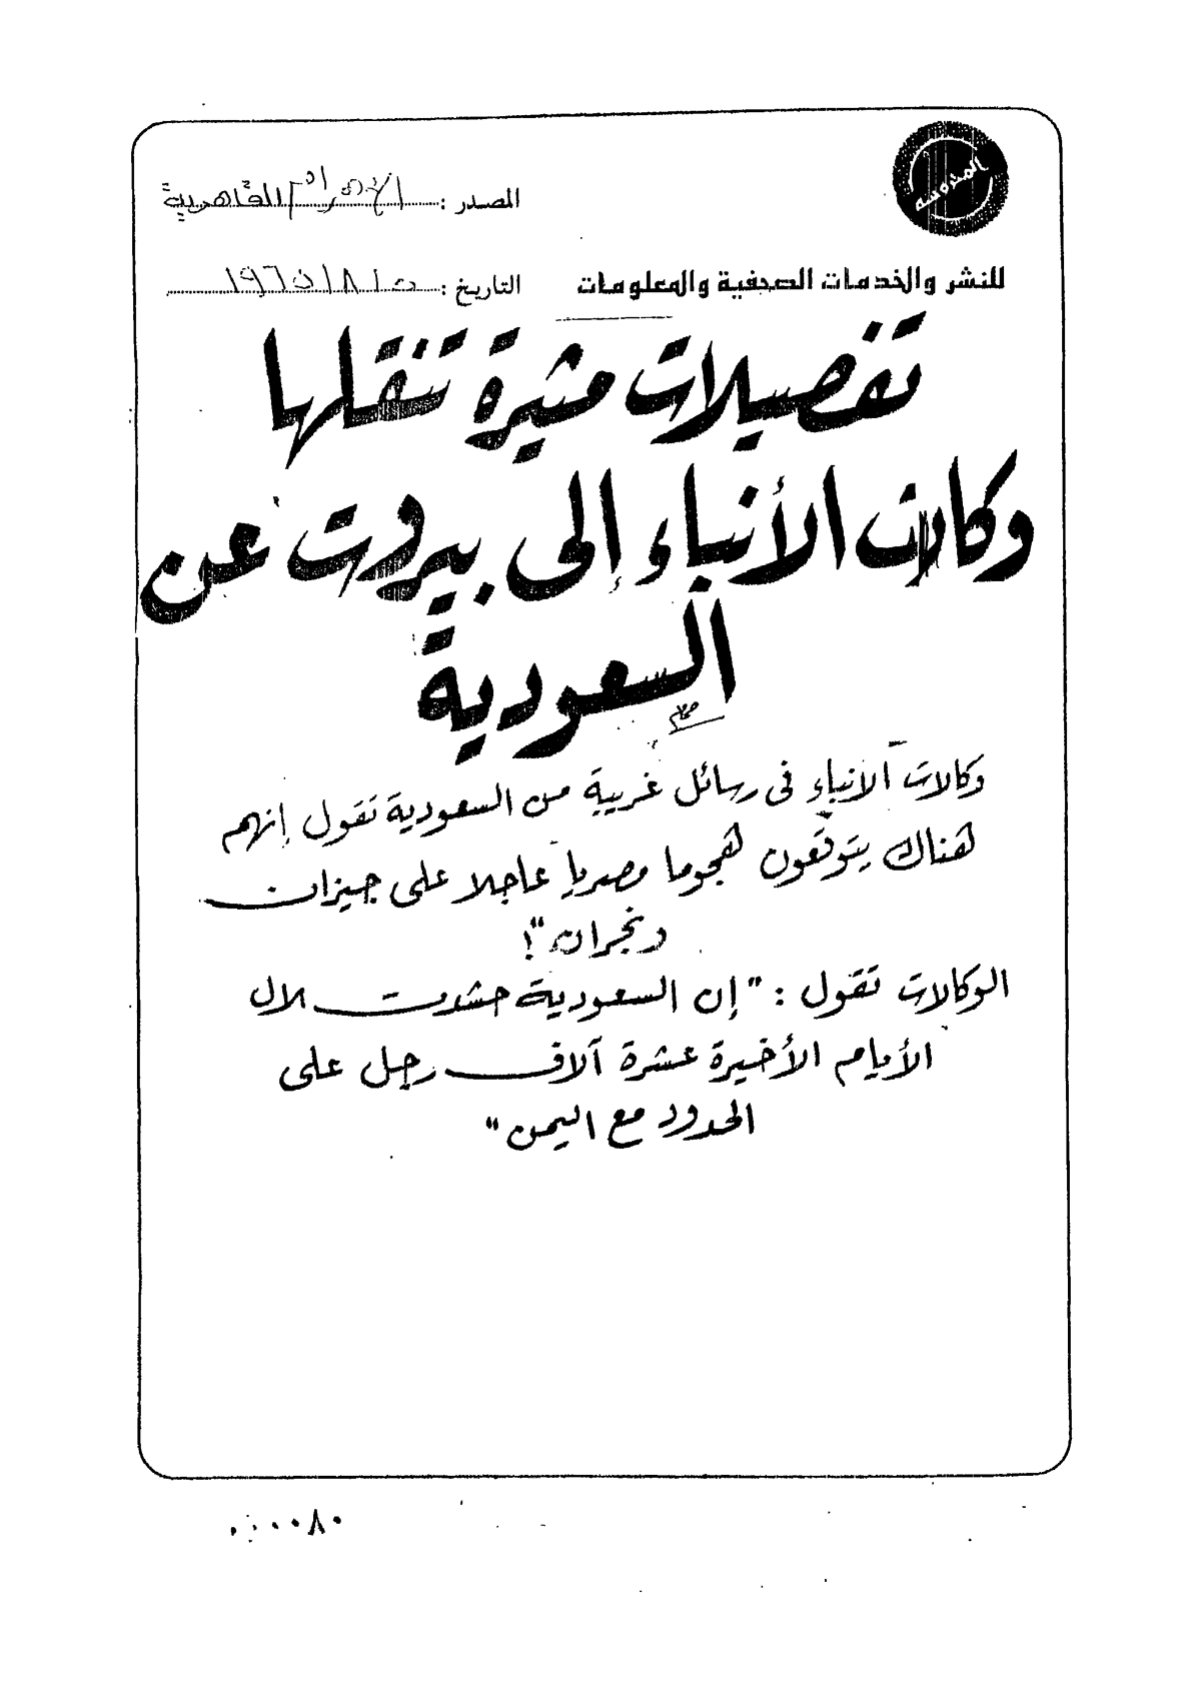 المحروسة
المصدر : الأهرام القاهرية
للنشر والخدمات الصحفية والمعلومات
التاريخ : ٥ / ٨ / ١٩٦٥
تفصيلات مثيرة تنقلها
وكالات الأنباء إلى بيروت عن
السعودية
وكالات الانباء فى رسائل غريبة من السعودية تقول إنهم
هناك يتوقعون هجوما مصريا عاجلا على جيزان
ونجران"!
الوكالات تقول : "إن السعودية حشدت لال
الأيام الأخيرة عشرة آلاف رجل على
الحدود مع اليمن"